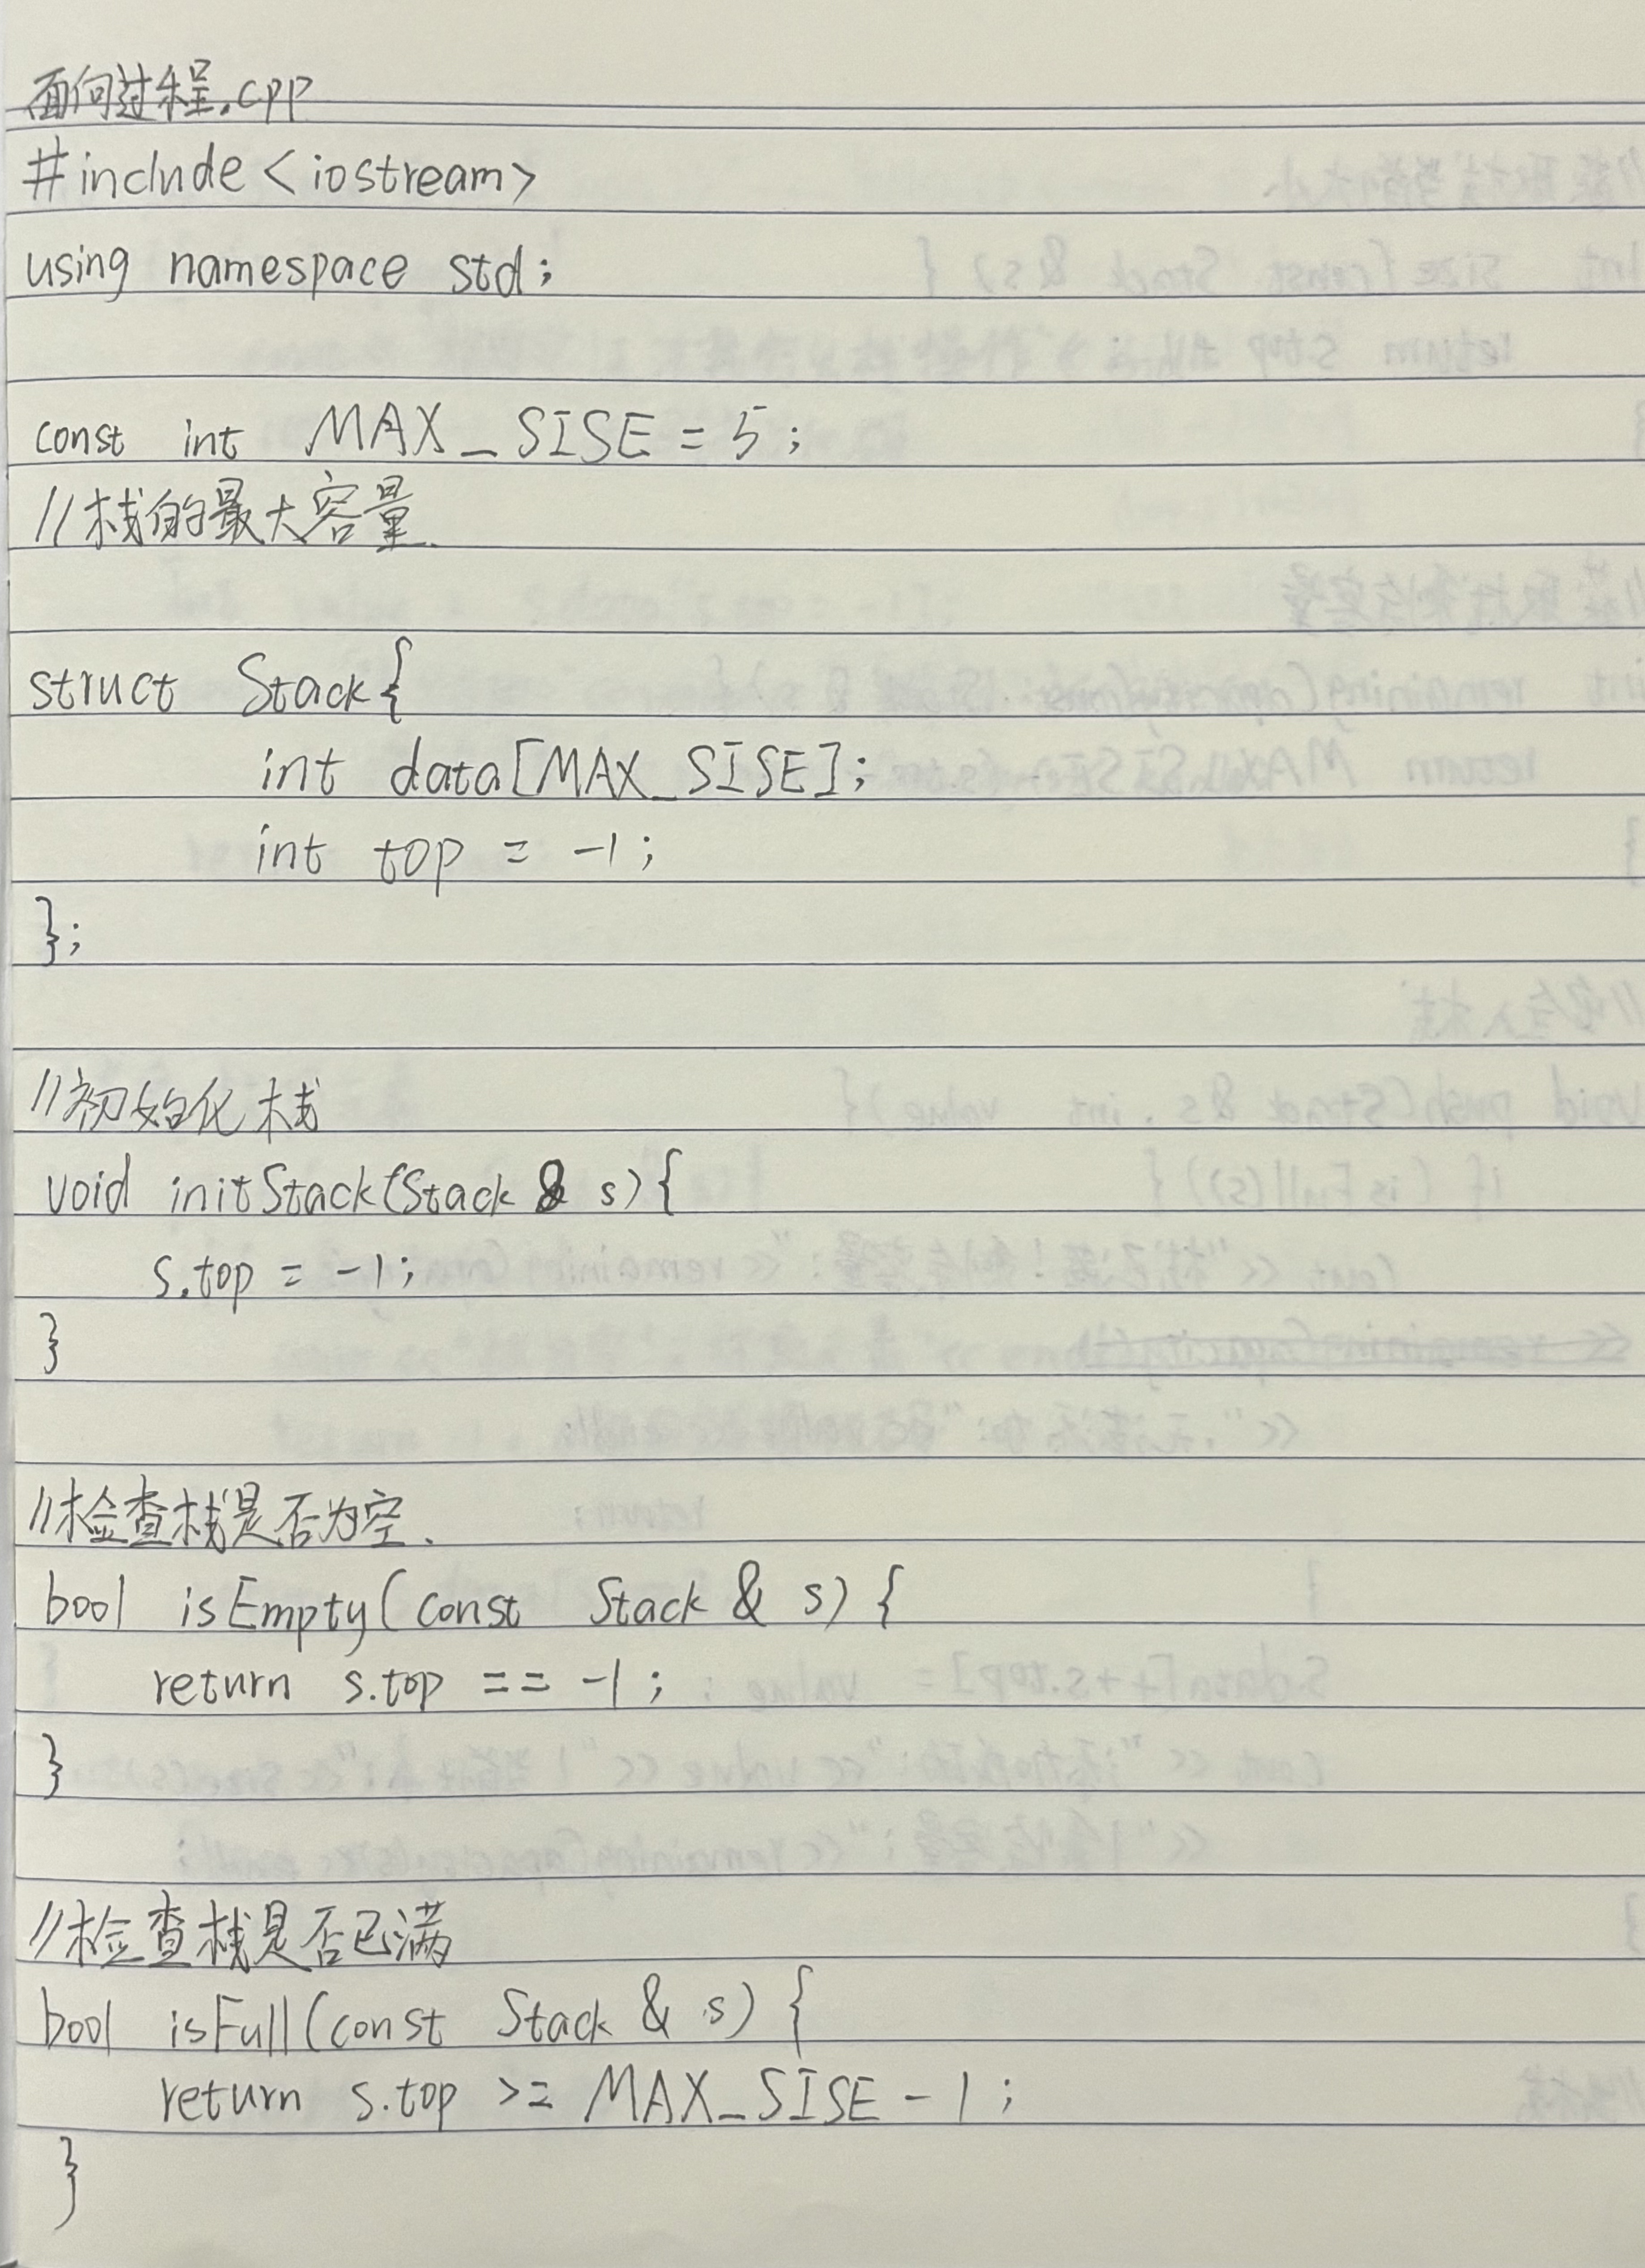 面向过程.cpp
#include <iostream>
using namespace std;
const int MAX_SISE = 5;
//栈的最大容量.
struct Stack{
int data[MAX_SISE];
int top = -1;
};
//初始化栈
void initStack(Stack & s){
s.top = -1;
}
//检查栈是否为空.
bool isEmpty(const Stack & s) {
return s.top == -1;
}
//检查栈是否已满
bool isFull(const Stack & s) {
return s.top >= MAX_SISE - 1;
}